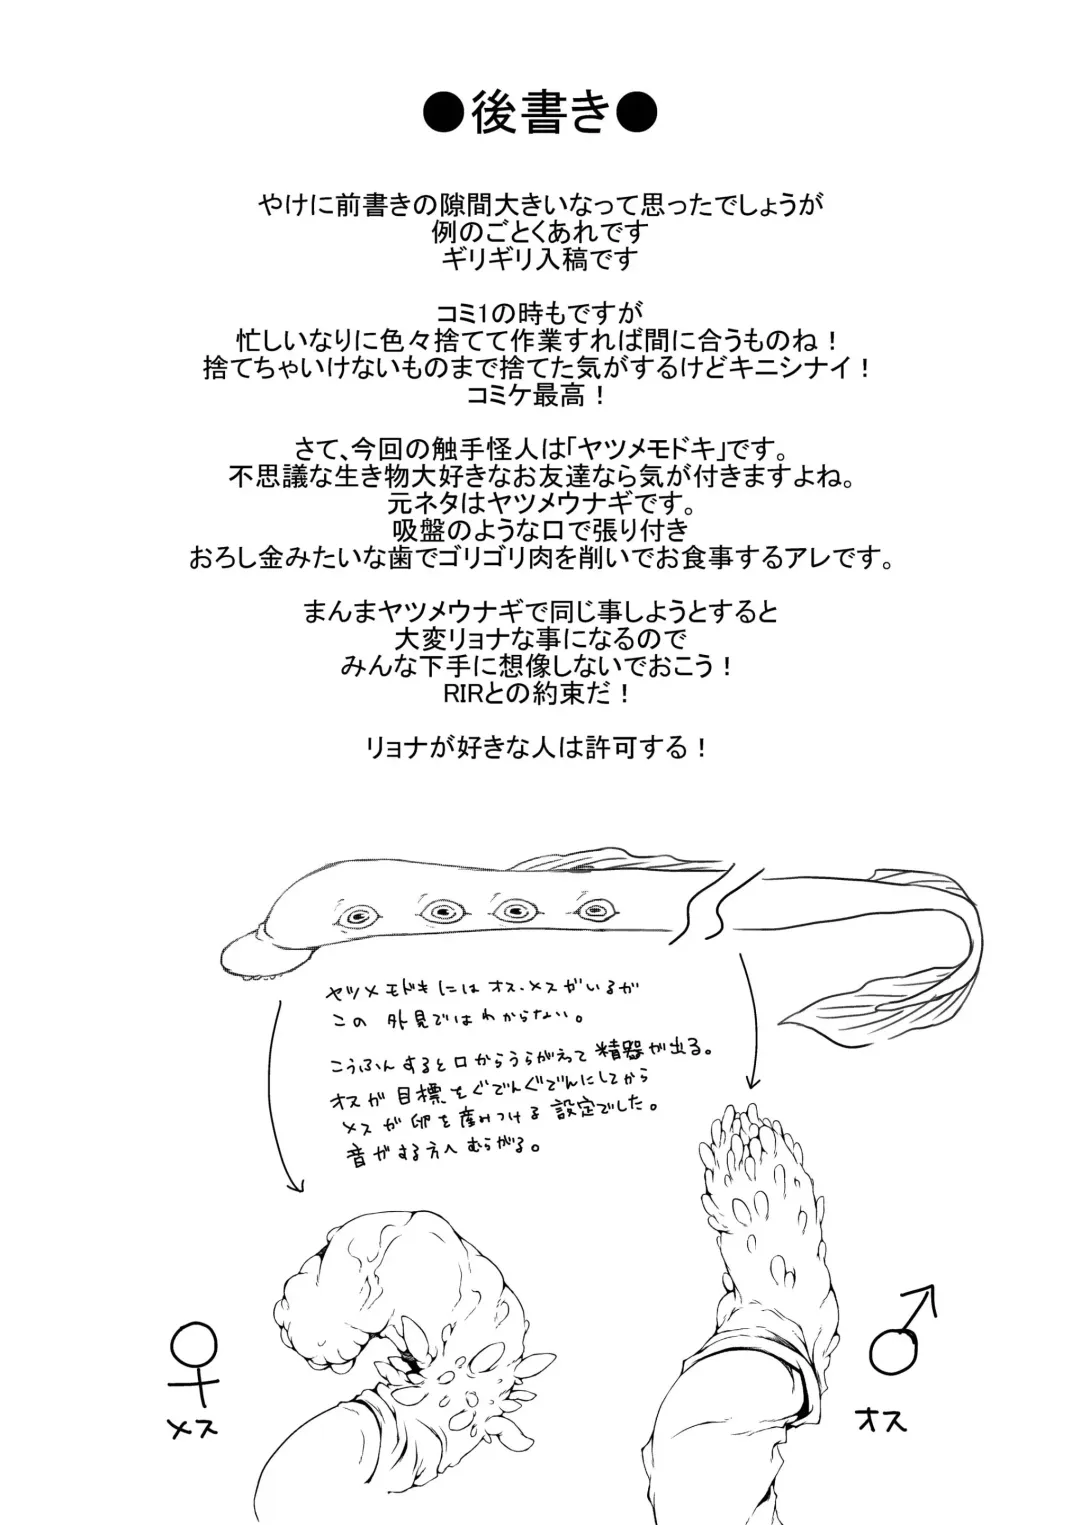 ●後書き●
やけに前書きの隙間大きいなって思ったでしょうが
例のごとくあれです
ギリギリ入稿です
コミ1の時もですが
忙しいなりに色々捨てて作業すれば間に合うものね！
捨てちゃいけないものまで捨てた気がするけどキニシナイ！
コミケ最高！
さて、今回の触手怪人は「ヤツメモドキ」です。
不思議な生き物大好きなお友達なら気が付きますよね。
元ネタはヤツメウナギです。
吸盤のような口で張り付き
おろし金みたいな歯でゴリゴリ肉を削いでお食事するアレです。
まんまヤツメウナギで同じ事しようとすると
大変リョナな事になるので
みんな下手に想像しないでおこう！
RIRとの約束だ！
リョナが好きな人は許可する！
ヤツメモドキにはオス・メスがいるが
この外見ではわからない。
こうふんすると口からうらがえって精器が出る。
オスが目標をぐでんぐでんにしてから
メスが卵を産みつける設定でした。
音がする方へむらがる。
♀
メス
♂
オス